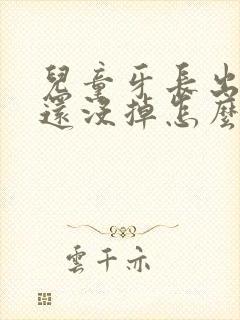 兒童牙長出
還沒掉怎麼
雲千亦